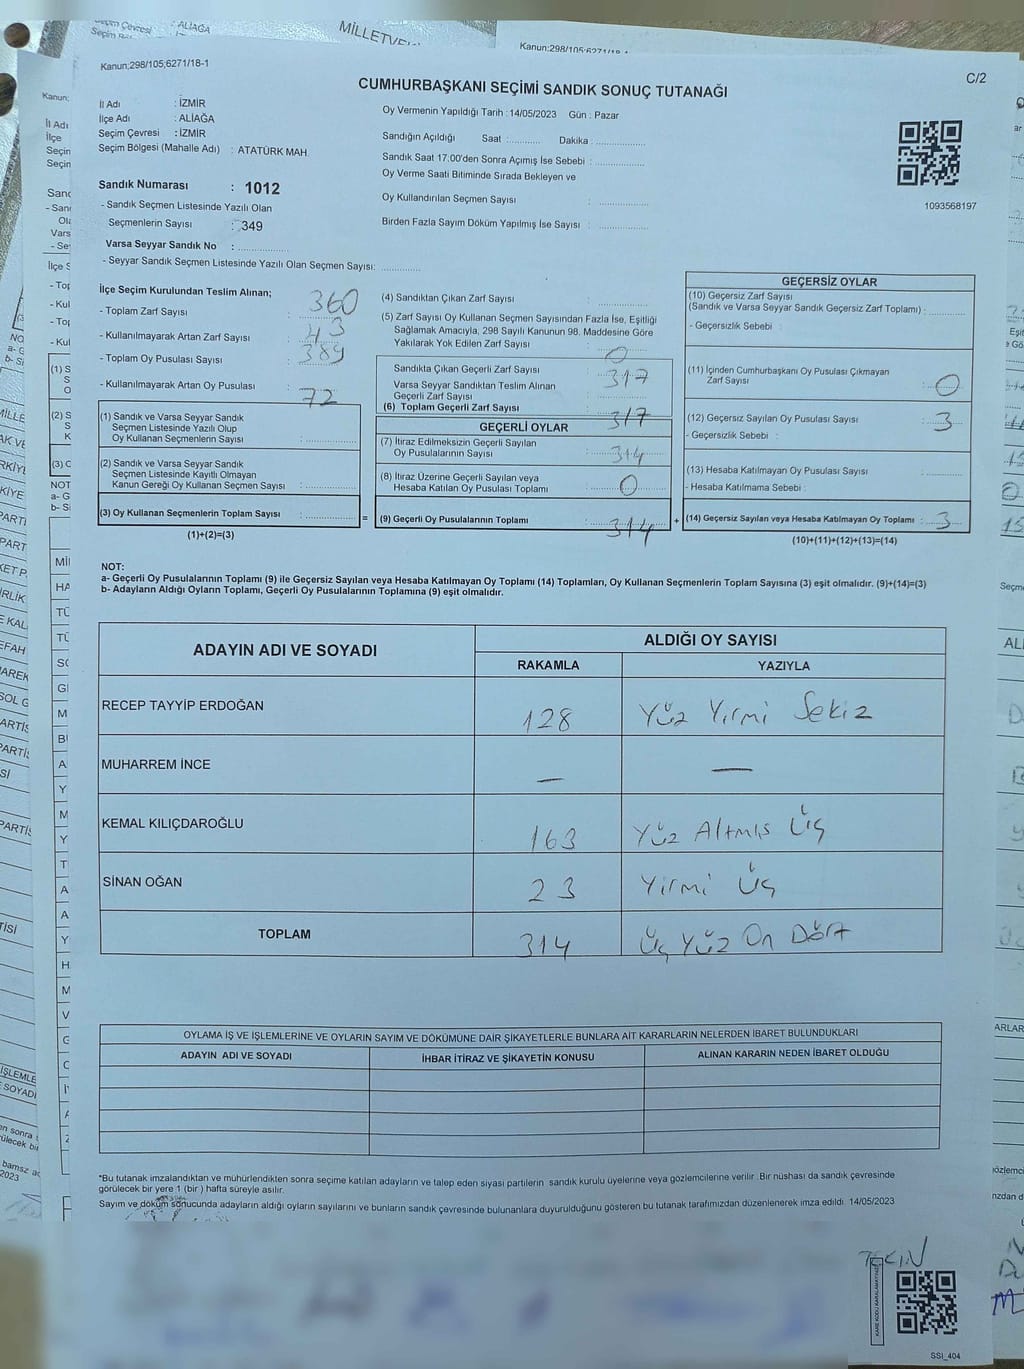 Kanun;298/105;6271/18-1
C/2
CUMHURBAŞKANI SEÇİMİ SANDIK SONUÇ TUTANAĞI
İl Adı : İZMİR
İlçe Adı : ALİAĞA
Seçim Çevresi : İZMİR
Seçim Bölgesi (Mahalle Adı) : ATATÜRK MAH.
Oy Vermenin Yapıldığı Tarih : 14/05/2023 Gün : Pazar
Sandığın Açıldığı Saat : Dakika :
Sandık Saat 17:00'den Sonra Açımış İse Sebebi :
Oy Verme Saati Bitiminde Sırada Bekleyen ve
Oy Kullandırılan Seçmen Sayısı :
Birden Fazla Sayım Döküm Yapılmış İse Sayısı :
1093568197
Sandık Numarası : 1012
- Sandık Seçmen Listesinde Yazılı Olan
Seçmenlerin Sayısı : 349
Varsa Seyyar Sandık No :
- Seyyar Sandık Seçmen Listesinde Yazılı Olan Seçmen Sayısı:
İlçe Seçim Kurulundan Teslim Alınan;
- Toplam Zarf Sayısı : 360
- Kullanılmayarak Artan Zarf Sayısı : 43
- Toplam Oy Pusulası Sayısı : 389
- Kullanılmayarak Artan Oy Pusulası : 72
(1) Sandık ve Varsa Seyyar Sandık
Seçmen Listesinde Yazılı Olup
Oy Kullanan Seçmenlerin Sayısı :
(2) Sandık ve Varsa Seyyar Sandık
Seçmen Listesinde Kayıtlı Olmayan
Kanun Gereği Oy Kullanan Seçmen Sayısı :
(3) Oy Kullanan Seçmenlerin Toplam Sayısı :
(1)+(2)=(3)
=
(4) Sandıktan Çıkan Zarf Sayısı :
(5) Zarf Sayısı Oy Kullanan Seçmen Sayısından Fazla İse, Eşitliği
Sağlamak Amacıyla, 298 Sayılı Kanunun 98. Maddesine Göre
Yakılarak Yok Edilen Zarf Sayısı : 0
Sandıkta Çıkan Geçerli Zarf Sayısı : 317
Varsa Seyyar Sandıktan Teslim Alınan
Geçerli Zarf Sayısı :
(6) Toplam Geçerli Zarf Sayısı : 317
GEÇERLİ OYLAR
(7) İtiraz Edilmeksizin Geçerli Sayılan
Oy Pusulalarının Sayısı : 314
(8) İtiraz Üzerine Geçerli Sayılan veya
Hesaba Katılan Oy Pusulası Toplamı : 0
(9) Geçerli Oy Pusulalarının Toplamı : 314
+
GEÇERSİZ OYLAR
(10) Geçersiz Zarf Sayısı
(Sandık ve Varsa Seyyar Sandık Geçersiz Zarf Toplamı) :
- Geçersizlik Sebebi :
(11) İçinden Cumhurbaşkanı Oy Pusulası Çıkmayan
Zarf Sayısı : 0
(12) Geçersiz Sayılan Oy Pusulası Sayısı : 3
- Geçersizlik Sebebi :
(13) Hesaba Katılmayan Oy Pusulası Sayısı :
- Hesaba Katılmama Sebebi :
(14) Geçersiz Sayılan veya Hesaba Katılmayan Oy Toplamı : 3
(10)+(11)+(12)+(13)=(14)
NOT:
a- Geçerli Oy Pusulalarının Toplamı (9) ile Geçersiz Sayılan veya Hesaba Katılmayan Oy Toplamı (14) Toplamları, Oy Kullanan Seçmenlerin Toplam Sayısına (3) eşit olmalıdır. (9)+(14)=(3)
b- Adayların Aldığı Oyların Toplamı, Geçerli Oy Pusulalarının Toplamına (9) eşit olmalıdır.
ADAYIN ADI VE SOYADI
ALDIĞI OY SAYISI
RAKAMLA YAZIYLA
RECEP TAYYİP ERDOĞAN 128 Yüz Yirmi Sekiz
MUHARREM İNCE — —
KEMAL KILIÇDAROĞLU 163 Yüz Altmış Üç
SİNAN OĞAN 23 Yirmi Üç
TOPLAM 314 Üç Yüz On Dört
OYLAMA İŞ VE İŞLEMLERİNE VE OYLARIN SAYIM VE DÖKÜMÜNE DAİR ŞİKAYETLERLE BUNLARA AİT KARARLARIN NELERDEN İBARET BULUNDUKLARI
ADAYIN ADI VE SOYADI İHBAR İTİRAZ VE ŞİKAYETİN KONUSU ALINAN KARARIN NEDEN İBARET OLDUĞU
*Bu tutanak imzalandıktan ve mühürlendikten sonra seçime katılan adayların ve talep eden siyasi partilerin sandık kurulu üyelerine veya gözlemcilerine verilir. Bir nüshası da sandık çevresinde
görülecek bir yere 1 (bir) hafta süreyle asılır.
Sayım ve döküm sonucunda adayların aldığı oyların sayılarını ve bunların sandık çevresinde bulunanlara duyurulduğunu gösteren bu tutanak tarafımızdan düzenlenerek imza edildi. 14/05/2023
TEKİN
KARE KODU KARALAMAYINIZ
SSI_404